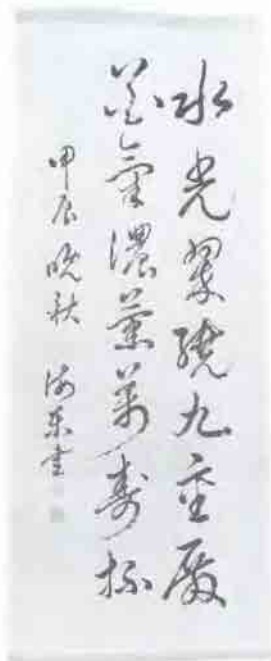 水光翠繞九重殿
花氣濃薰萬壽杯
甲辰晚秋 海东書